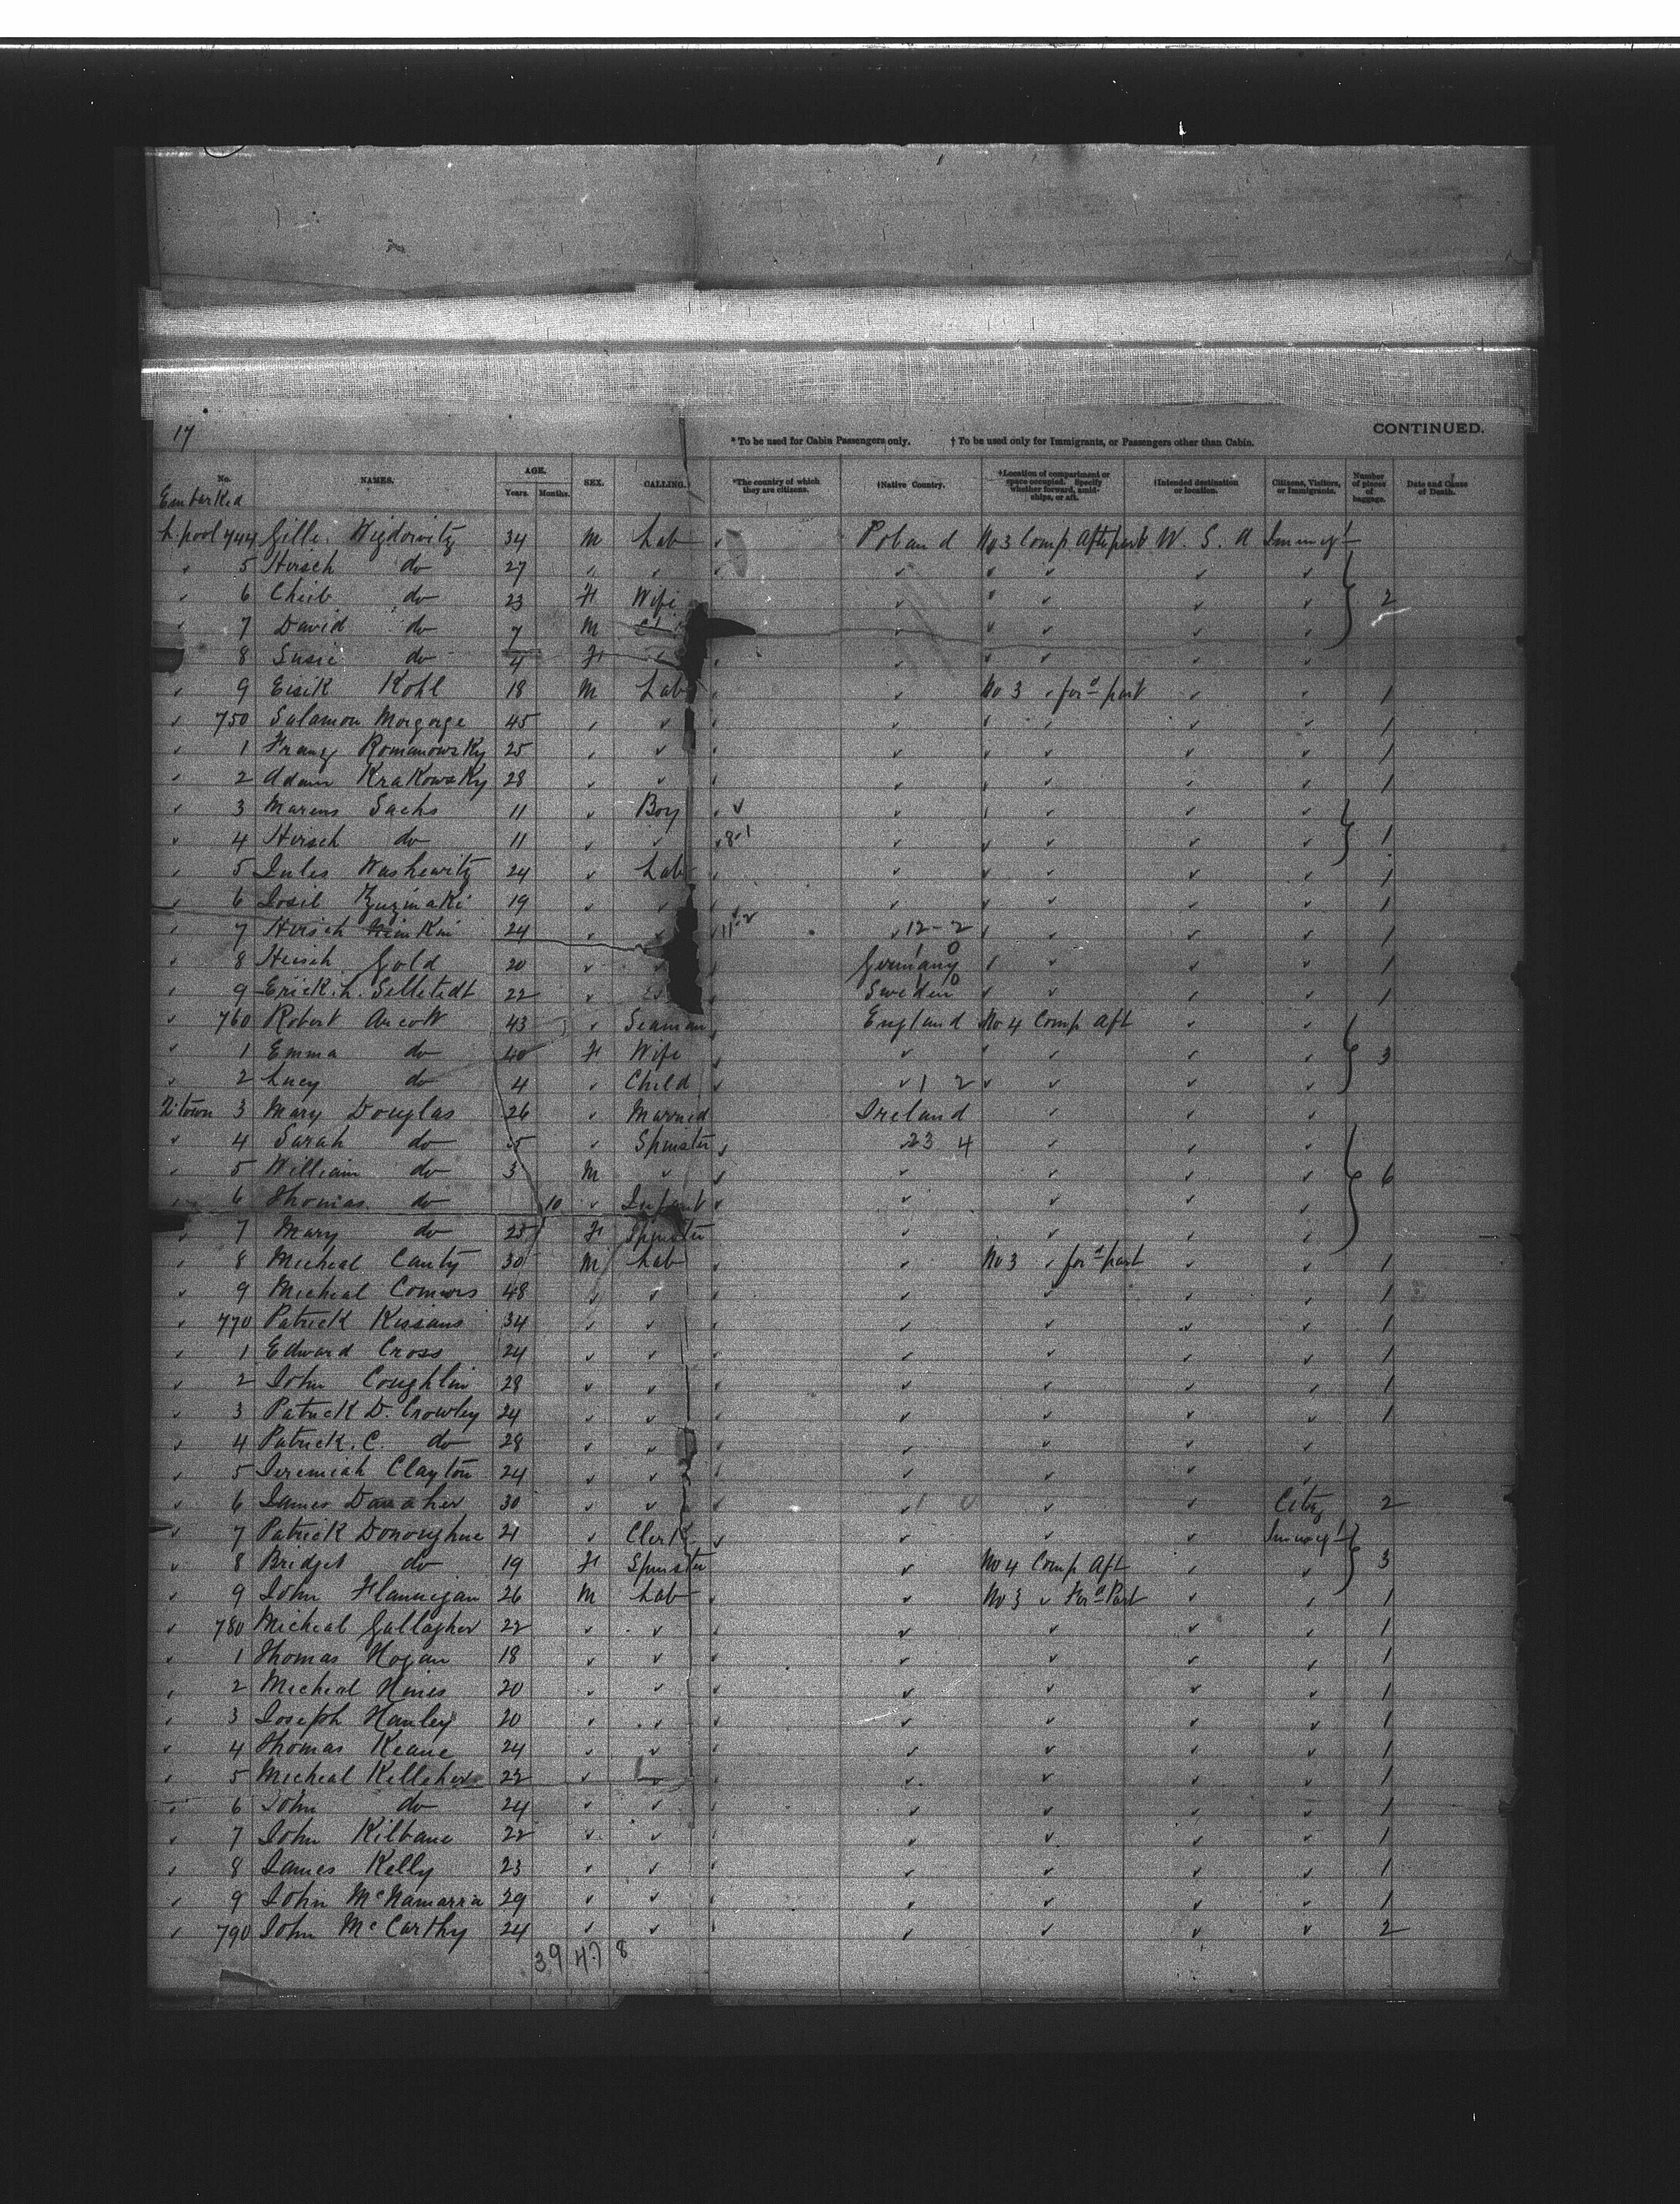 17
* To be used for Cabin Passengers only. † To be used only for Immigrants, or Passengers other than Cabin. CONTINUED.
No. NAMES. AGE. Years. Months. SEX. CALLING. *The country of which they are citizens. †Native Country. †Location of compartment or space occupied. Specify whether forward, amidships, or aft. †Intended destination or location. Citizens, Visitors, or Immigrants. Number of pieces of baggage. Date and Cause of Death.
Embarked
L.pool 744 Gille. Wigdorvitz 34 M Lab Poland No 3 Comp Aft part U. S. A Immigt
✓ 5 Hirsch do 27 ✓ ✓ ✓ ✓ ✓ ✓ ✓
✓ 6 Cheib do 23 F Wife ✓ ✓ ✓ ✓ 2
✓ 7 David do 7 M ✓ ✓ ✓ ✓
8 Susie do 4 F ✓ ✓ ✓ ✓ ✓
✓ 9 Eisik Kohl 18 M Lab ✓ No 3 ✓ ford part ✓ ✓ 1
✓ 750 Salamon Morgorge 45 ✓ ✓ ✓ ✓ ✓ ✓ 1
✓ 1 Franz Romanowsky 25 ✓ ✓ ✓ ✓ ✓ ✓ 1
✓ 2 Adam Krakowsky 28 ✓ ✓ ✓ ✓ ✓ ✓ 1
✓ 3 Marcus Sachs 11 ✓ Boy ✓ ✓ ✓ ✓ ✓
✓ 4 Hirsch do 11 ✓ ✓ ✓ ✓ ✓ ✓ 1
✓ 5 Jules Washewitz 24 ✓ Lab ✓ ✓ ✓ ✓ 1
✓ 6 Josil 19 ✓ ✓ ✓ ✓ ✓ ✓ 1
✓ 7 Hirsch 24 ✓ ✓ 11 ✓ 12-2 ✓ ✓ ✓ 1
✓ 8 Hirsch Gold 20 ✓ ✓ Germany 1 0 ✓ ✓ ✓ 1
✓ 9 Erick. L. Selltedt 22 ✓ Sweden 1 0 ✓ ✓ ✓ 1
✓ 760 Robert Arcott 43 ✓ Seaman England No 4 Comp Aft ✓ ✓
✓ 1 Emma do 40 F Wife ✓ ✓ ✓ ✓ 3
✓ 2 Lucy do 4 ✓ Child ✓ ✓ 1 2 ✓ ✓ ✓ ✓
Q.town 3 Mary Douglas 26 ✓ Married Ireland ✓ ✓ ✓
✓ 4 Sarah do 5 ✓ Spinster ✓ 23 4 ✓ ✓ ✓
✓ 5 William do 3 M ✓ ✓ ✓ ✓ ✓ ✓ 6
✓ 6 Thomas. do 10 ✓ Infant ✓ ✓ ✓ ✓ ✓
✓ 7 Mary do 25 F Spinster ✓ ✓ ✓ ✓
✓ 8 Micheal Canty 30 M Lab ✓ ✓ No 3 ✓ ford part ✓ ✓ 1
✓ 9 Micheal Connors 48 ✓ ✓ ✓ ✓ ✓ ✓ 1
✓ 770 Patrick Kissans 34 ✓ ✓ ✓ ✓ ✓ ✓ 1
✓ 1 Edward Cross 24 ✓ ✓ ✓ ✓ ✓ ✓ 1
✓ 2 John Coughlin 28 ✓ ✓ ✓ ✓ ✓ ✓ 1
✓ 3 Patrick D. Crowley 24 ✓ ✓ ✓ ✓ ✓ ✓ 1
✓ 4 Patrick. C. do 28 ✓ ✓ ✓ ✓ ✓ ✓
✓ 5 Jeremiah Clayton 24 ✓ ✓ ✓ ✓ ✓ ✓
✓ 6 James Danaher 30 ✓ ✓ ✓ ✓ 1 0 ✓ ✓ City 2
✓ 7 Patrick Donoughue 21 ✓ Clerk ✓ ✓ ✓ ✓ Immigt
✓ 8 Bridget do 19 F Spinster ✓ No 4 Comp Aft ✓ ✓ 3
✓ 9 John Flannigan 26 M Lab ✓ ✓ No 3 ✓ Ford Part ✓ ✓ 1
✓ 780 Micheal Gallagher 22 ✓ ✓ ✓ ✓ ✓ ✓ 1
✓ 1 Thomas Hogan 18 ✓ ✓ ✓ ✓ ✓ ✓ 1
✓ 2 Micheal Hines 20 ✓ ✓ ✓ ✓ ✓ ✓ 1
✓ 3 Joseph Hanley 20 ✓ ✓ ✓ ✓ ✓ ✓ 1
✓ 4 Thomas Keane 24 ✓ ✓ ✓ ✓ ✓ ✓ 1
✓ 5 Micheal Kelleher 22 ✓ ✓ ✓ ✓ ✓ ✓ 1
✓ 6 John do 24 ✓ ✓ ✓ ✓ ✓ ✓ 1
✓ 7 John Kilbane 22 ✓ ✓ ✓ ✓ ✓ ✓ 1
✓ 8 James Kelly 23 ✓ ✓ ✓ ✓ ✓ ✓ 1
✓ 9 John McNamarra 29 ✓ ✓ ✓ ✓ ✓ ✓ 1
✓ 790 John McCarthy 24 ✓ ✓ ✓ ✓ ✓ ✓ 2
39 47 8